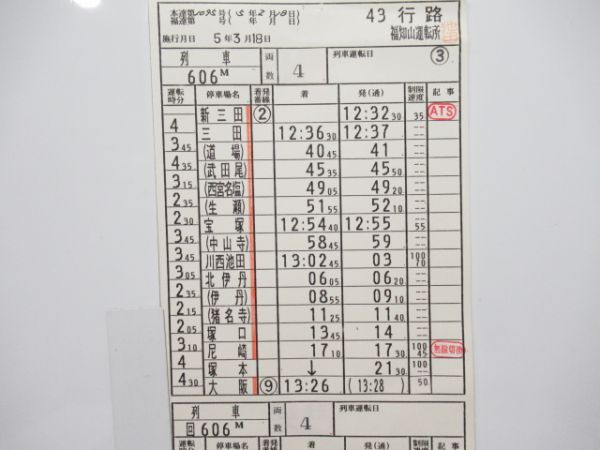 本達第1095号(5年2月18日) 43 行路
福達第 号( 年 月 日) 福知山運転所
施行月日 5年3月18日 ③
列車 両数 4 列車運転日
606M
運転時分 停車場名 着発番線 着 発(通) 制限速度 記事
新三田 ② 12:32 30 35 ATS
4
三田 12:36 30 12:37 --
3 45
(道場) 40 45 41 --
4 35
(武田尾) 45 35 45 50 --
3 15
(西宮名塩) 49 05 49 20 --
2 35
(生瀬) 51 55 52 10 --
2 30
宝塚 12:54 40 12:55 -- 55
3 45
(中山寺) 58 45 59 --
3 45
川西池田 13:02 45 03 100 70
3
北伊丹 06 05 06 20 --
2 35
(伊丹) 08 55 09 10 --
2 15
(猪名寺) 11 25 11 40 --
2 05
塚口 13 45 14 --
3 10
尼崎 17 10 17 30 100 45 無線切換
4
塚本 ↓ 21 30 100 --
4 30
大阪 ⑨ 13:26 (13:28) 50
列車 両数 4 列車運転日
回606M
運転 停車場名 着発 着 発(通) 制限 記事